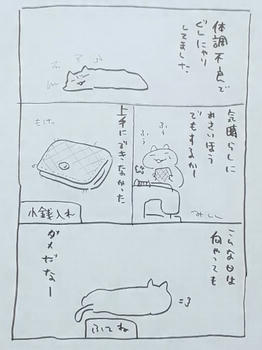 体調不良で
ぐんにゃり
してました。
気晴らしに
れさいほう
でもするかー
ふぅ
ふぅ
ミシン
上手にできなかった。
小銭入れ
こんな日は
何やっても
ダメだなー
ふてね